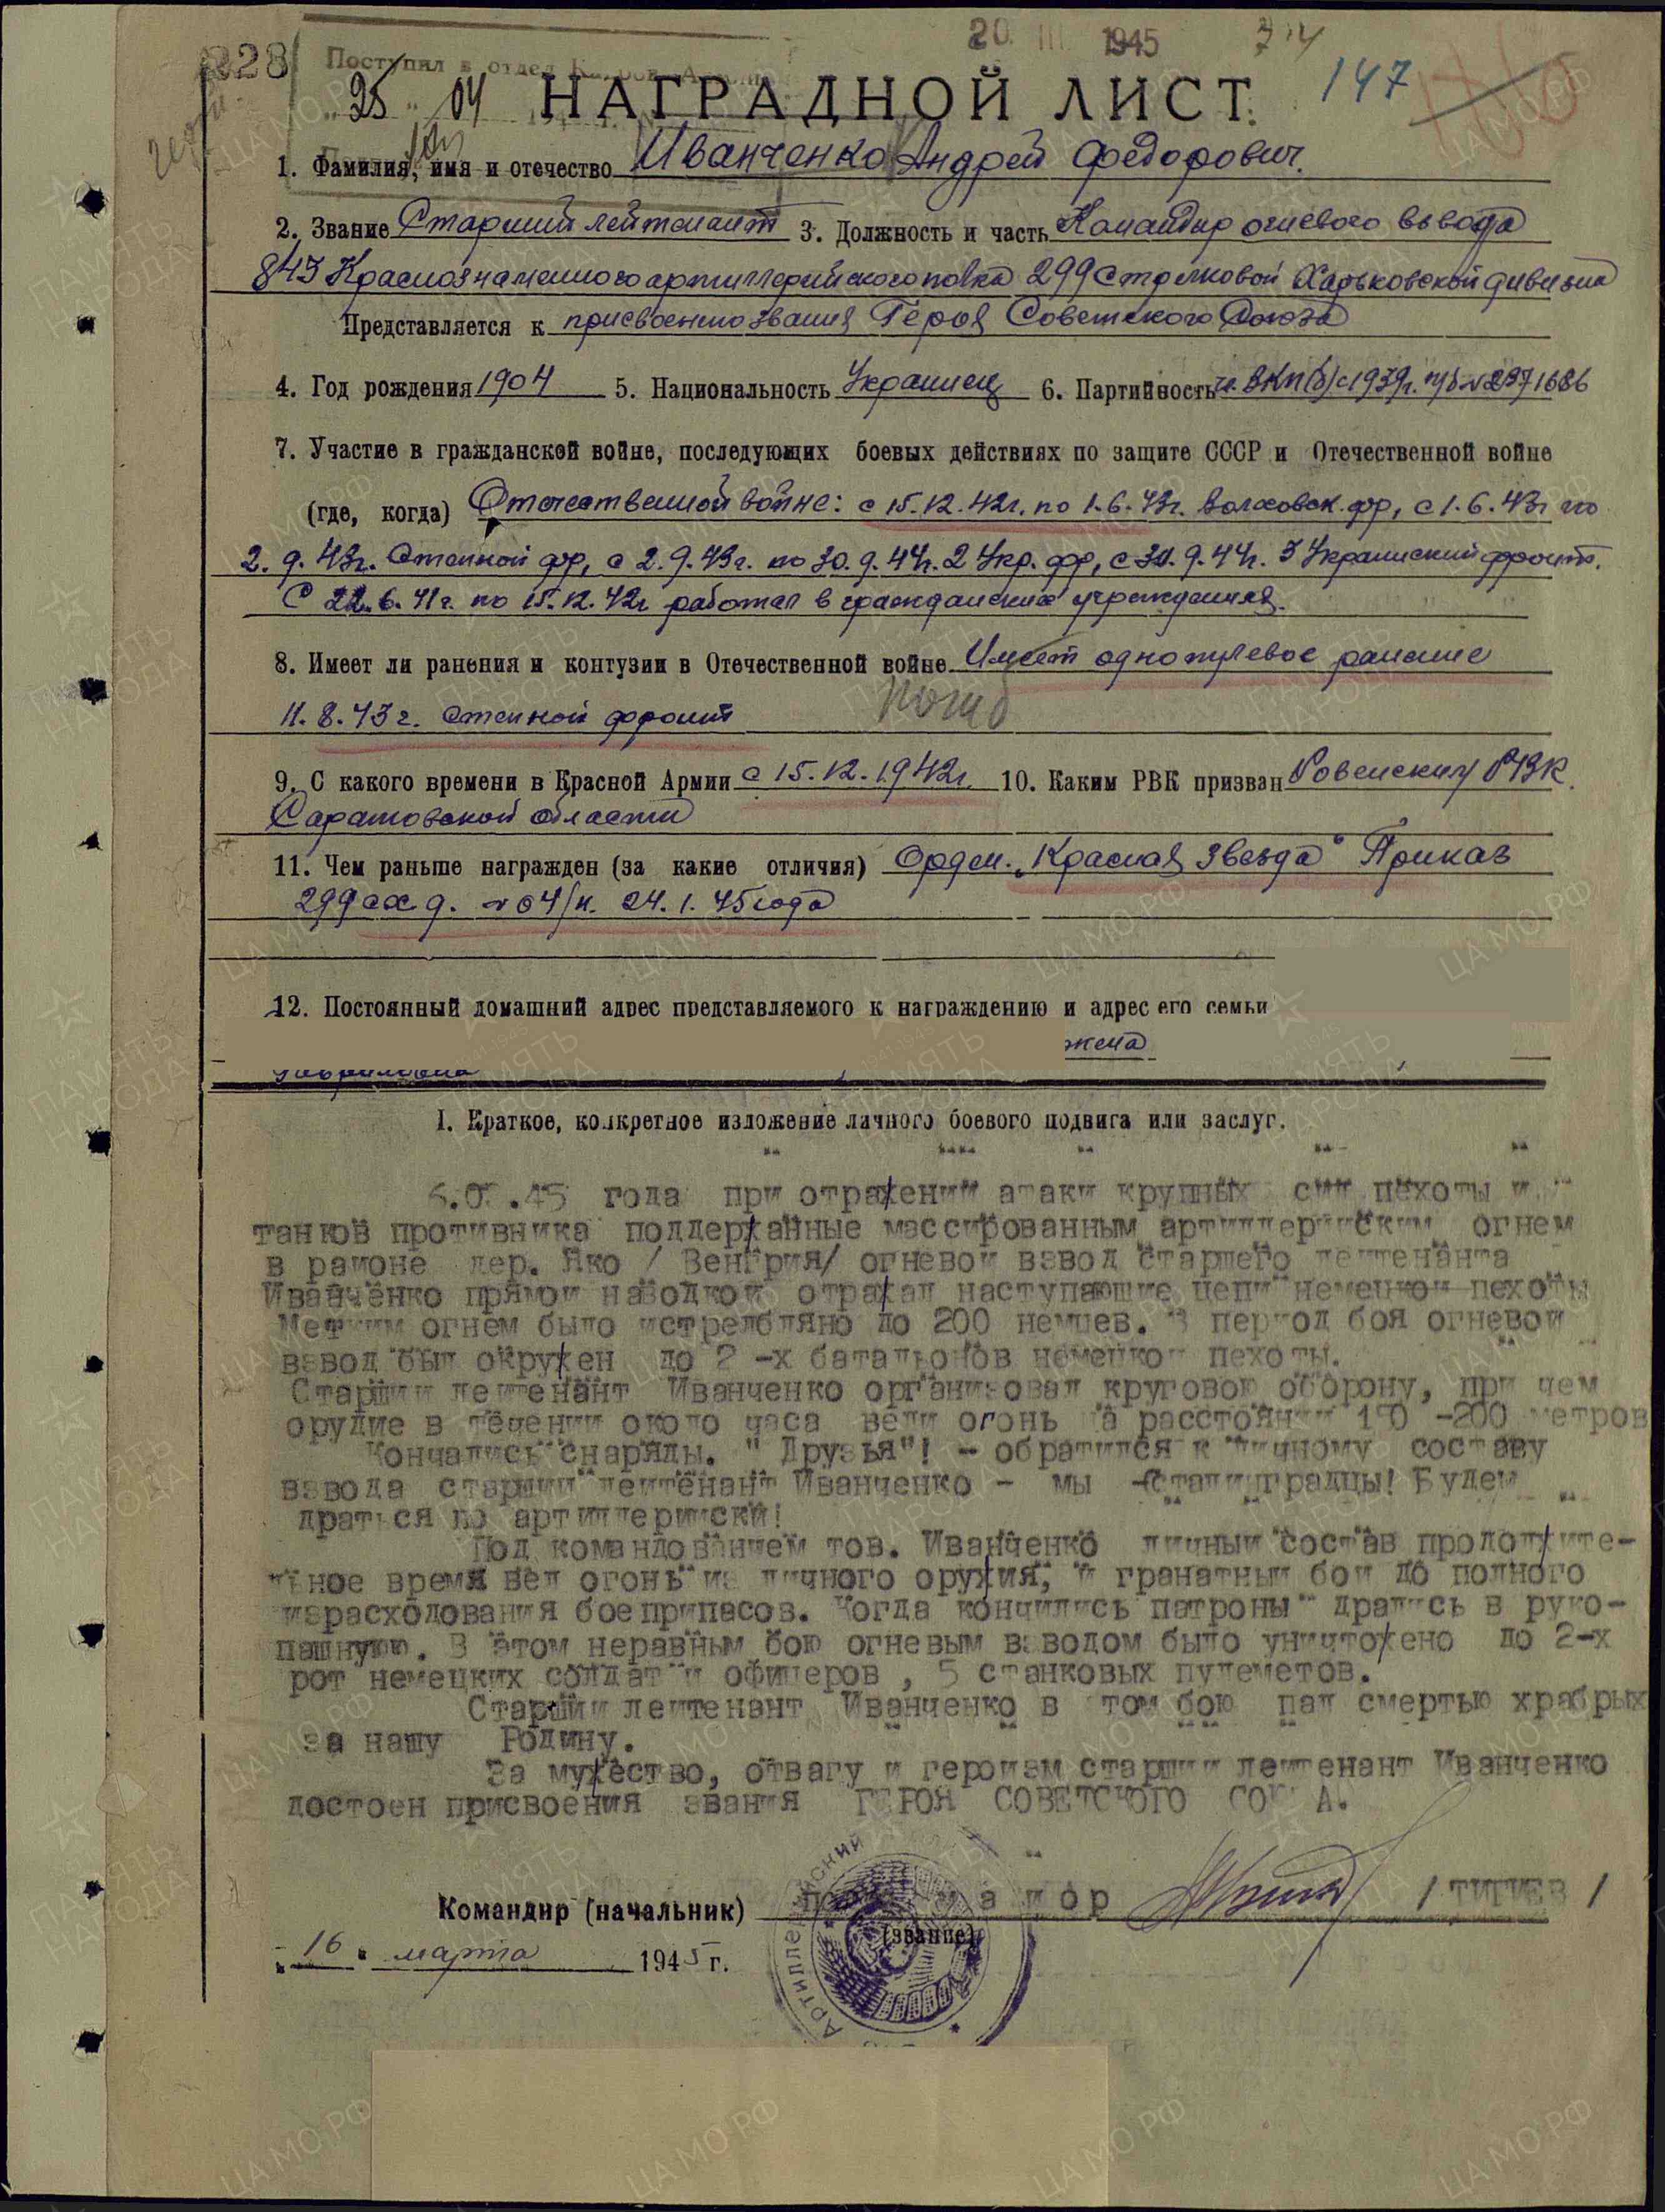 228
20 III 1945
Поступил в отдел
25 04
НАГРАДНОЙ ЛИСТ
147
1. Фамилия, имя и отечество Иванченко Андрей Федорович.
2. Звание Старший лейтенант 3. Должность и часть Командир огневого взвода
843 Краснознаменного артиллерийского полка 299 Стрелковой Харьковской дивизии
Представляется к присвоению звания Героя Советского Союза
4. Год рождения 1904 5. Национальность Украинец 6. Партийность ч. ВКП(б) с 1939г. п/б №2371686
7. Участие в гражданской войне, последующих боевых действиях по защите СССР и Отечественной войне
(где, когда) Отечественной войне: с 15.12.42г. по 1.6.43г. Волховск. фр, с 1.6.43г по
2.9.43г. Степной фр, с 2.9.43г. по 30.9.44г. 2 Укр. фр, с 30.9.44г. 3 Украинский фронт.
С 22.6.41г. по 15.12.42г работал в гражданских учреждениях.
8. Имеет ли ранения и контузии в Отечественной войне Имеет одно пулевое ранение
11.8.43г. Степной фронт
погиб
9. С какого времени в Красной Армии с 15.12.1942г. 10. Каким РВК призван Ровенским РВК.
Саратовской области
11. Чем раньше награжден (за какие отличия) Орден. „Красная Звезда" Приказ
299 сх д. №04/н. 24.1.45 года
12. Постоянный домашний адрес представляемого к награждению и адрес его семьи
жена
I. Краткое, конкретное изложение личного боевого подвига или заслуг.
.45 года при отражении атаки крупных сил пехоты и
танков противника поддержанные массированным артиллерийским огнем
в районе дер. Яко / Венгрия/ огневой взвод старшего лейтенанта
Иванченко прямой наводкой отражал наступающие цепи немецкой пехоты
Метким огнем было истреблбляно до 200 немцев. В период боя огневой
взвод был окружен до 2 -х батальонов немецкой пехоты.
Старший лейтенант Иванченко организовал круговою оборону, при чем
орудие в течении около часа вели огонь на расстоянии 150 -200 метров
Кончались снаряды. " Друзья"! - обратился к личному составу
взвода старший лейтенант Иванченко - мы -Сталинградцы! Будем
драться по артиллерийски!
Под командованием тов. Иванченко личный состав продолжите-
льное время вел огонь из личного оружия, и гранатный бой до полного
израсходования боеприпасов. Когда кончились патроны дрались в руко-
пашную. В этом неравным бою огневым взводом было уничтожено до 2-х
рот немецких солдат и офицеров , 5 станковых пулеметов.
Старший лейтенант Иванченко в этом бою пал смертью храбрых
за нашу Родину.
За мужество, отвагу и героизм старший лейтенант Иванченко
достоен присвоения звания ГЕРОЯ СОВЕТСКОГО СОЮЗА.
Командир (начальник) майор / ТИТИЕВ /
(звание)
„16" марта 1945 г.